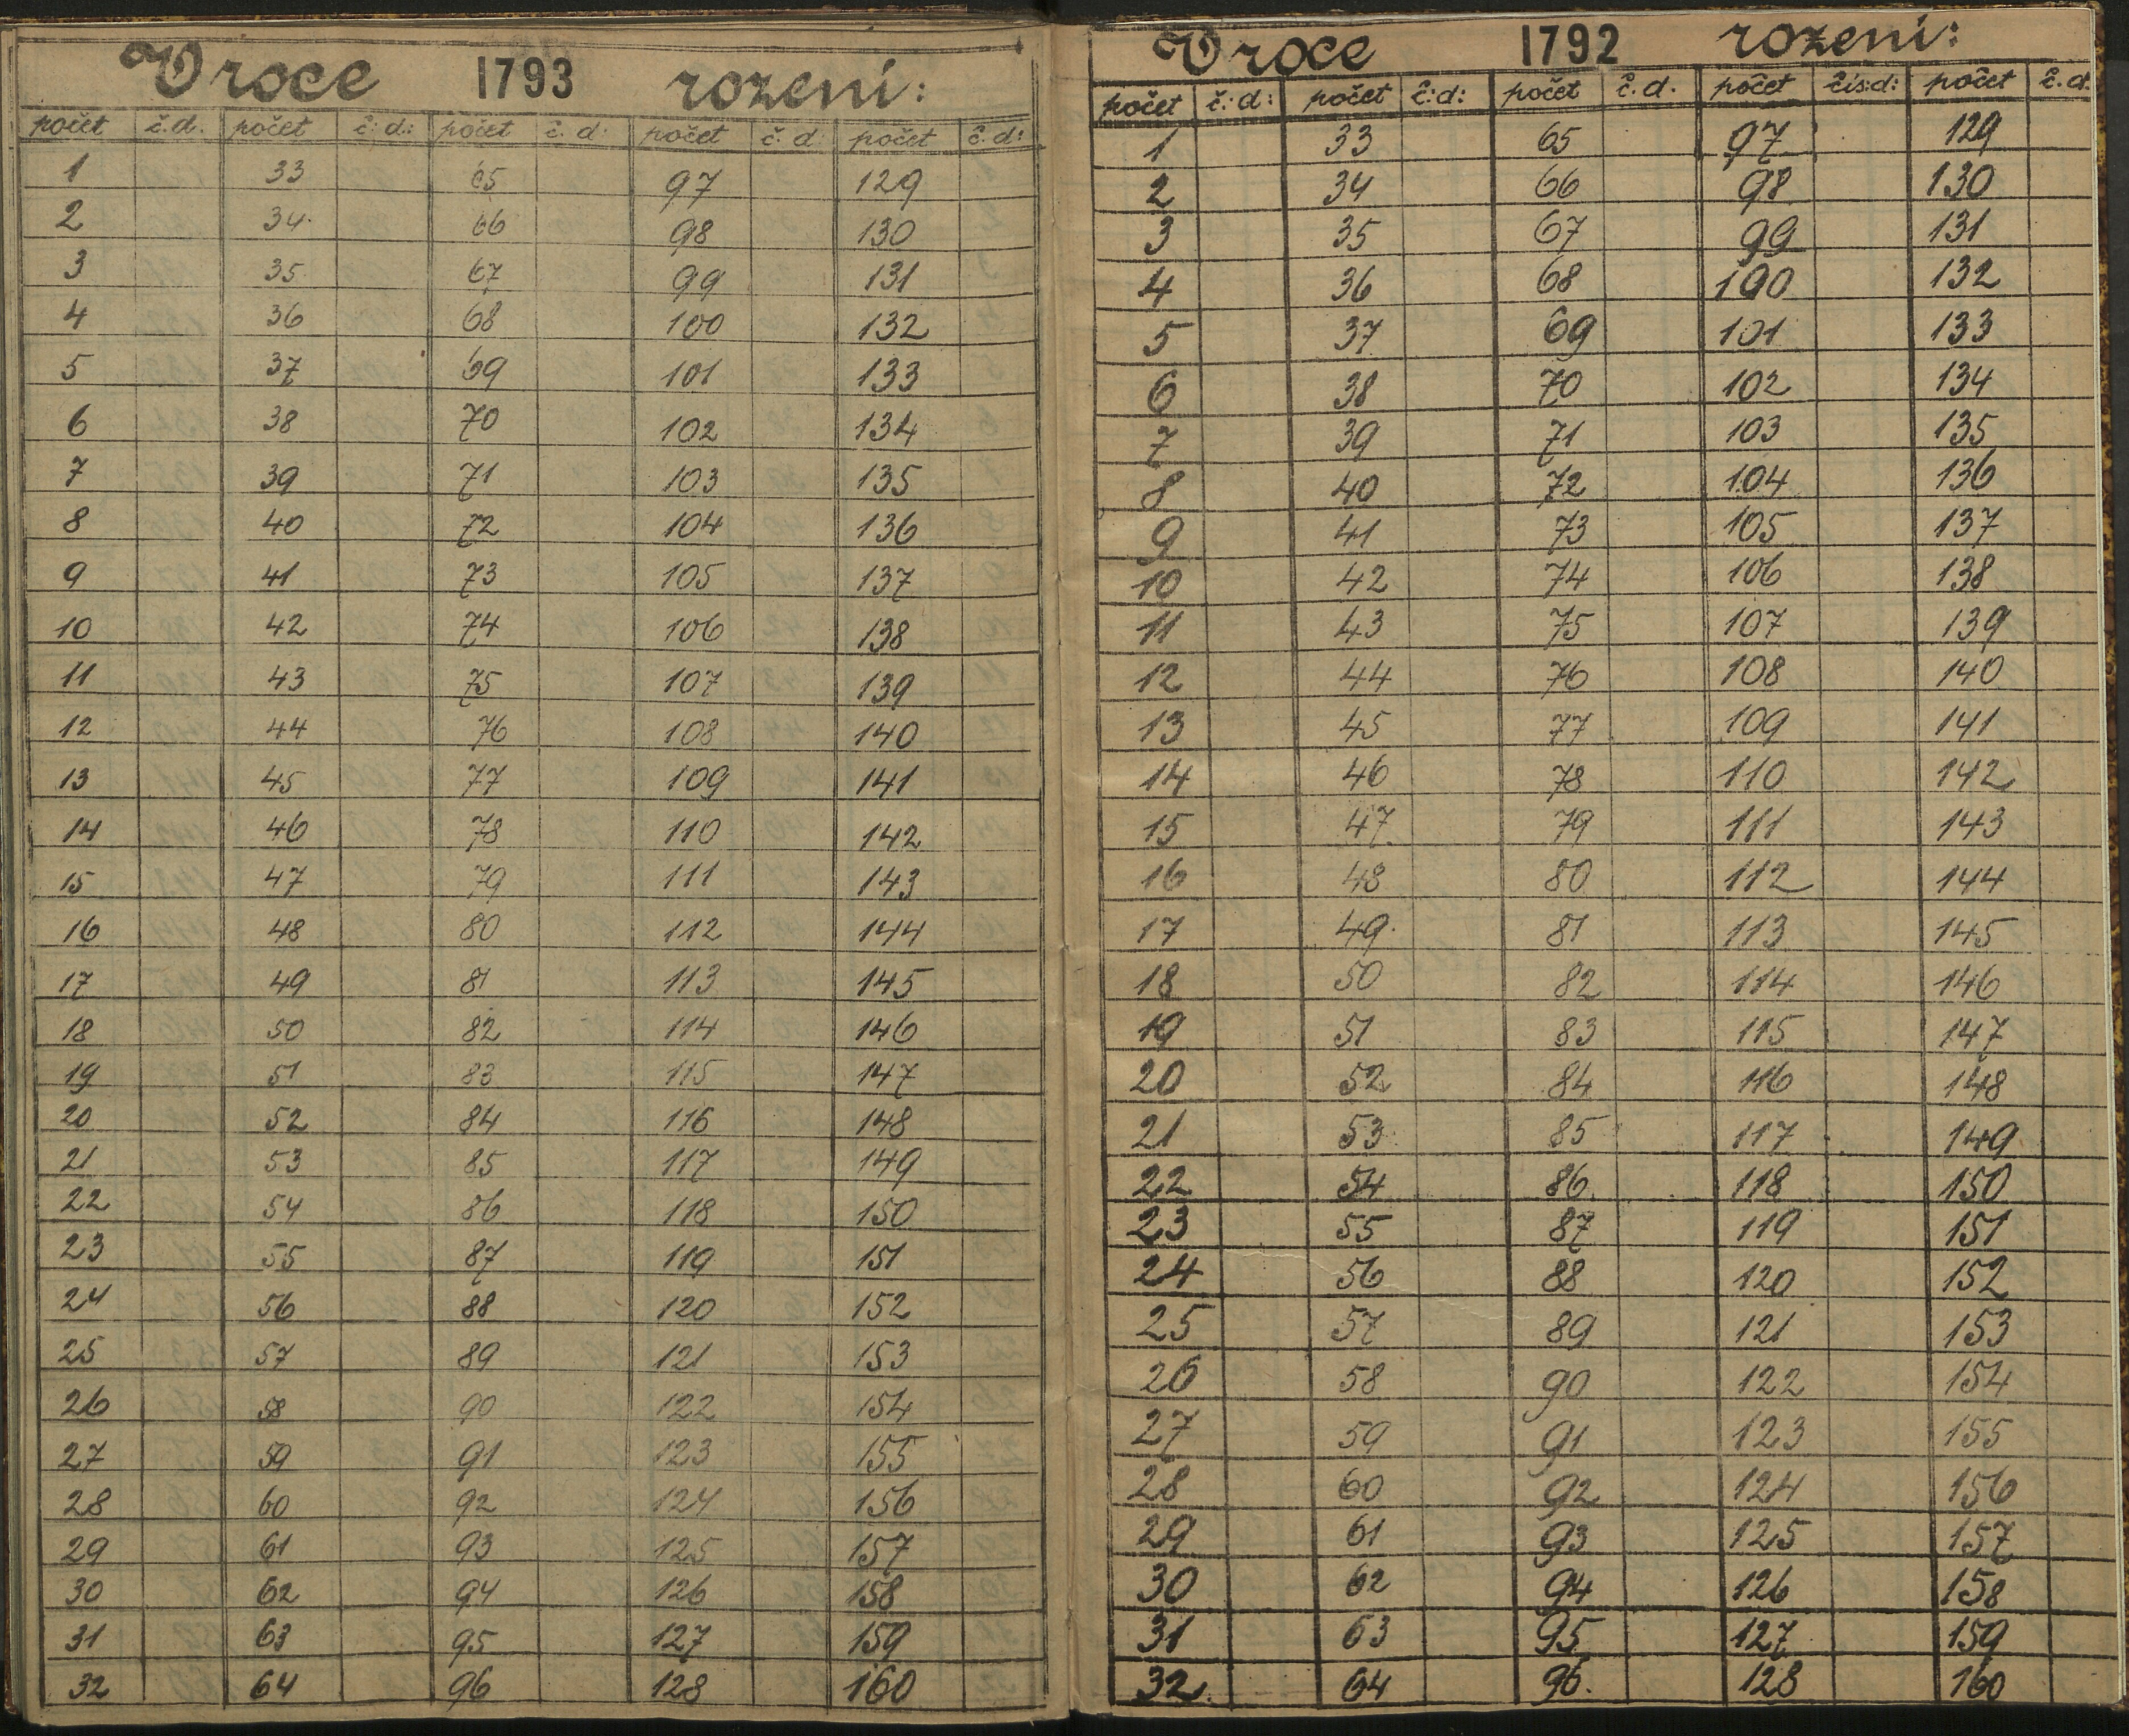 V roce 1793 rozeni:
počet č.d. počet č:d.: počet č. d: počet č. d: počet č.d:
1 33 65 97 129
2 34 66 98 130
3 35 67 99 131
4 36 68 100 132
5 37 69 101 133
6 38 70 102 134
7 39 71 103 135
8 40 72 104 136
9 41 73 105 137
10 42 74 106 138
11 43 75 107 139
12 44 76 108 140
13 45 77 109 141
14 46 78 110 142
15 47 79 111 143
16 48 80 112 144
17 49 81 113 145
18 50 82 114 146
19 51 83 115 147
20 52 84 116 148
21 53 85 117 149
22 54 86 118 150
23 55 87 119 151
24 56 88 120 152
25 57 89 121 153
26 58 90 122 154
27 59 91 123 155
28 60 92 124 156
29 61 93 125 157
30 62 94 126 158
31 63 95 127 159
32 64 96 128 160
V roce 1792 rozeni:
počet č:d: počet č:d: počet č.d. počet čís:d: počet č.d.
1 33 65 97 129
2 34 66 98 130
3 35 67 99 131
4 36 68 100 132
5 37 69 101 133
6 38 70 102 134
7 39 71 103 135
8 40 72 104 136
9 41 73 105 137
10 42 74 106 138
11 43 75 107 139
12 44 76 108 140
13 45 77 109 141
14 46 78 110 142
15 47 79 111 143
16 48 80 112 144
17 49 81 113 145
18 50 82 114 146
19 51 83 115 147
20 52 84 116 148
21 53 85 117 149
22 54 86 118 150
23 55 87 119 151
24 56 88 120 152
25 57 89 121 153
26 58 90 122 154
27 59 91 123 155
28 60 92 124 156
29 61 93 125 157
30 62 94 126 158
31 63 95 127 159
32 64 96 128 160